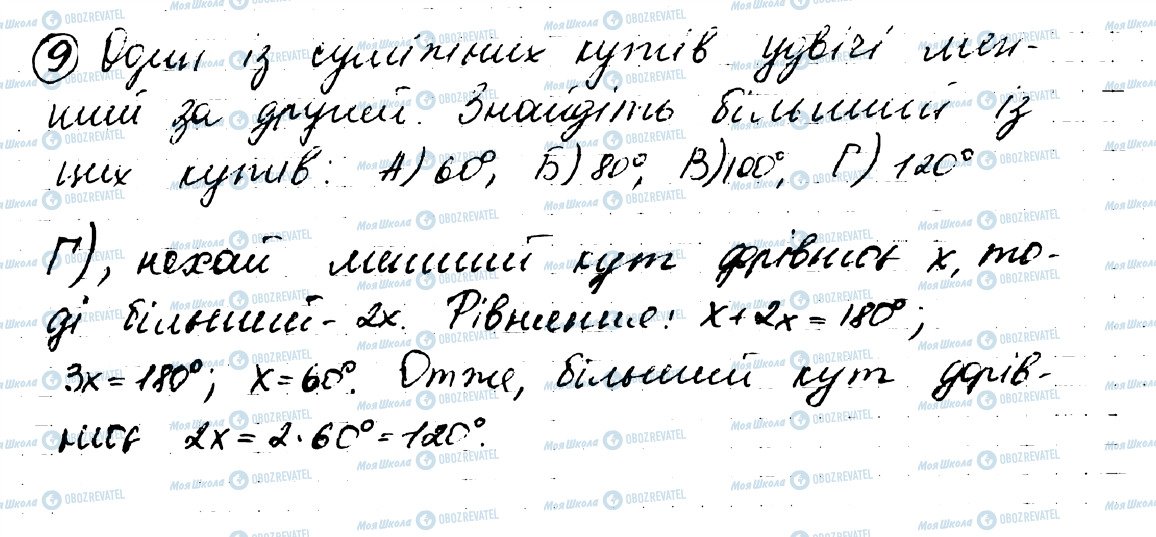 9 Один із суміжних кутів удвічі мен-
ший за другий. Знайдіть більший із
цих кутів: А) 60°, Б) 80°, В) 100°, Г) 120°
Г), нехай менший кут дорівнює x, то-
ді більший - 2x. Рівняння: x + 2x = 180°;
3x = 180°; x = 60°. Отже, більший кут дорів-
нює 2x = 2·60° = 120°.